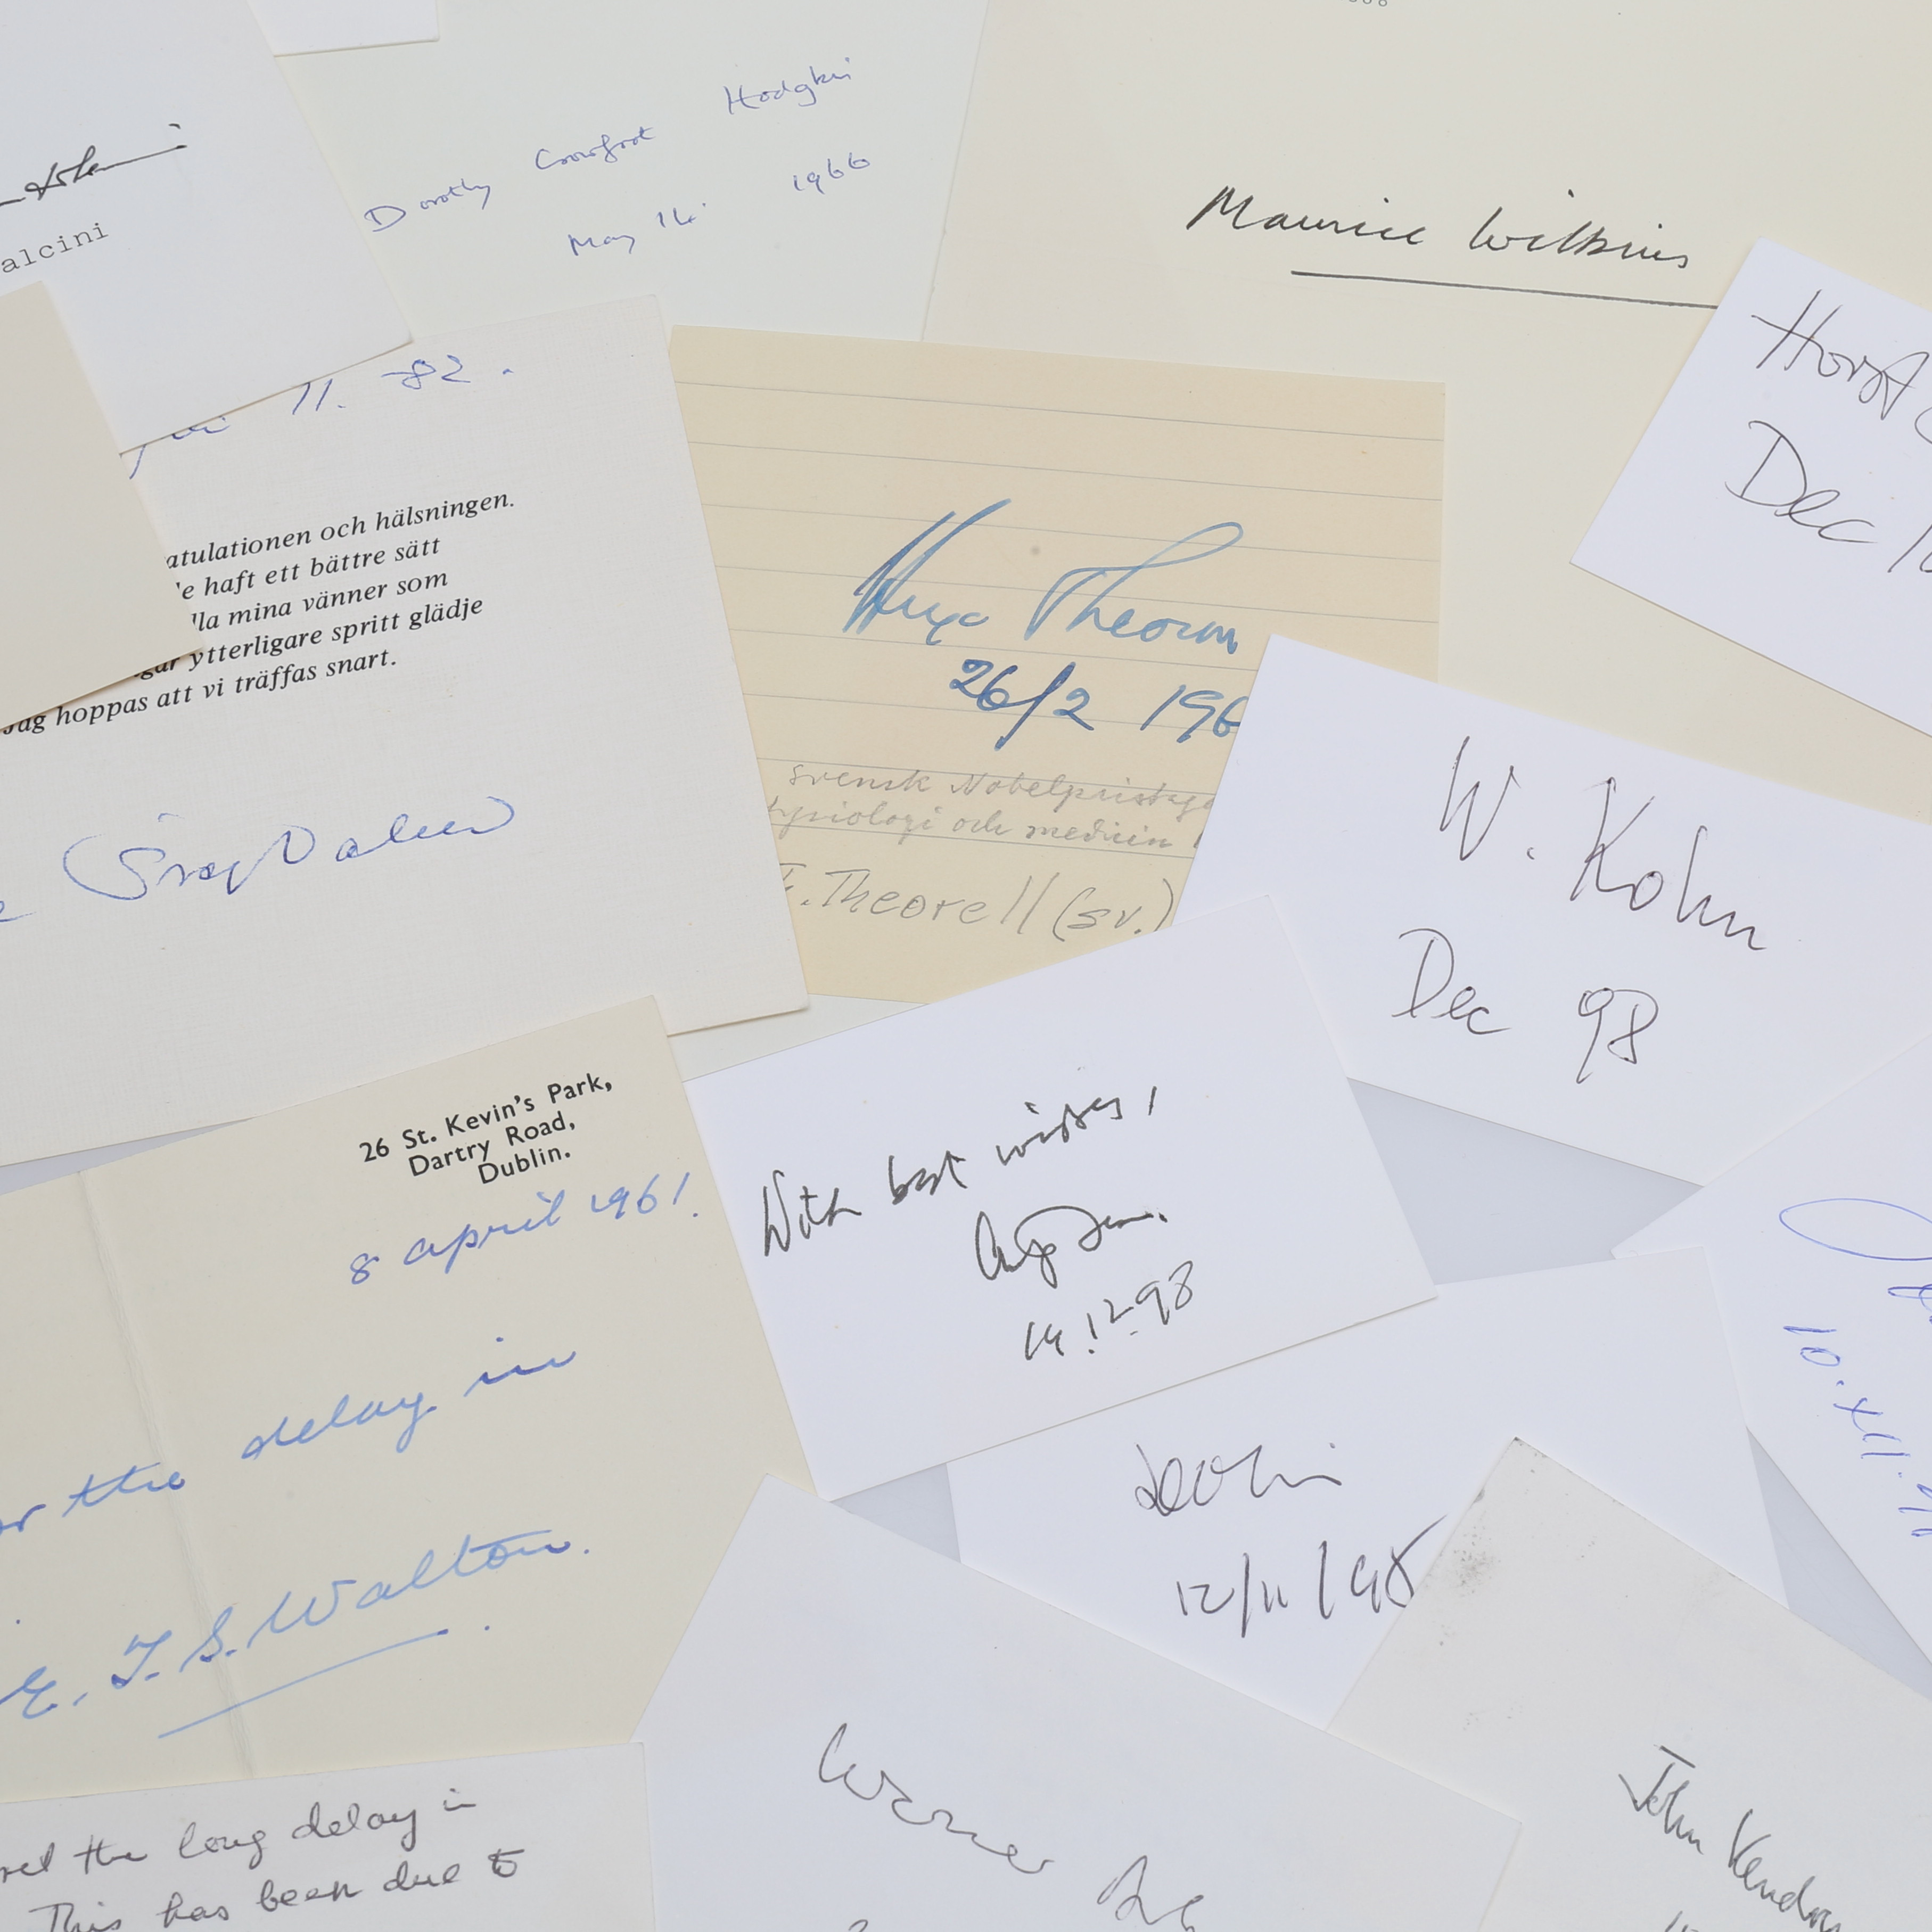 alcini
Dorothy Crowfoot Hodgkin
May 14. 1966
Maurice Wilkins
Horst
Dec
11. 82.
atulationen och hälsningen.
haft ett bättre sätt
mina vänner som
ytterligare spritt glädje
hoppas att vi träffas snart.
Hugo Theorell
26/2 196
svensk Nobelpristag
ysiologi och medicin
. Theorell (sv.)
W. Kohn
Dec 98
26 St. Kevin's Park,
Dartry Road,
Dublin.
8 april 1961.
the delay in
E. T. S. Walton.
With best wishes,
14.12.98
12/11/98
10.XII.
the long delay in
This has been due to
Werner
John Kendrew